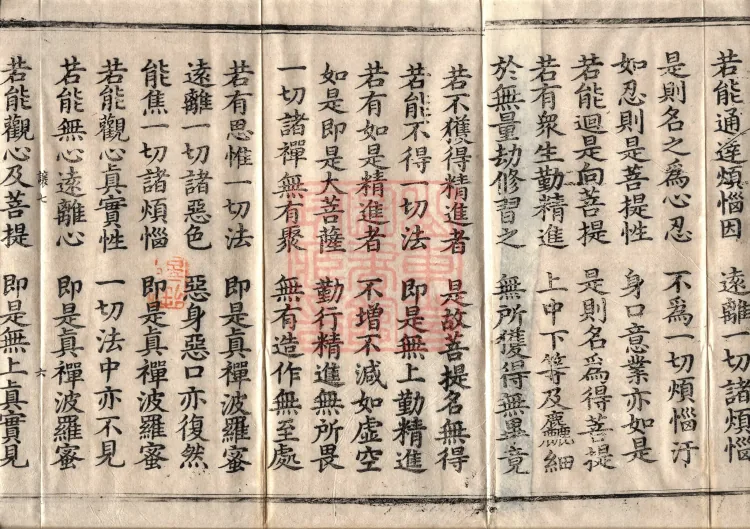 若能通達煩惱因　遠離一切諸煩惱
是則名之為心忍　不為一切煩惱汙
如忍則是菩提性　身口意業亦如是
若能迴是向菩提　是則名為得菩提
若有眾生勤精進　上中下等及麤細
於無量劫修習之　無所獲得無畢竟
若不獲得精進者　是故菩提名無得
若能不得一切法　即是無上勤精進
若有如是精進者　不增不減如虛空
如是即是大菩薩　勤行精進無所畏
一切諸禪無有聚　無有造作無至處
若有思惟一切法　即是真禪波羅蜜
遠離一切諸惡色　惡身惡口亦復然
能焦一切諸煩惱　即是真禪波羅蜜
若能觀心真實性　一切法中亦不見
若能無心遠離心　即是真禪波羅蜜
讓七　六
若能觀心及菩提　即是無上真實見